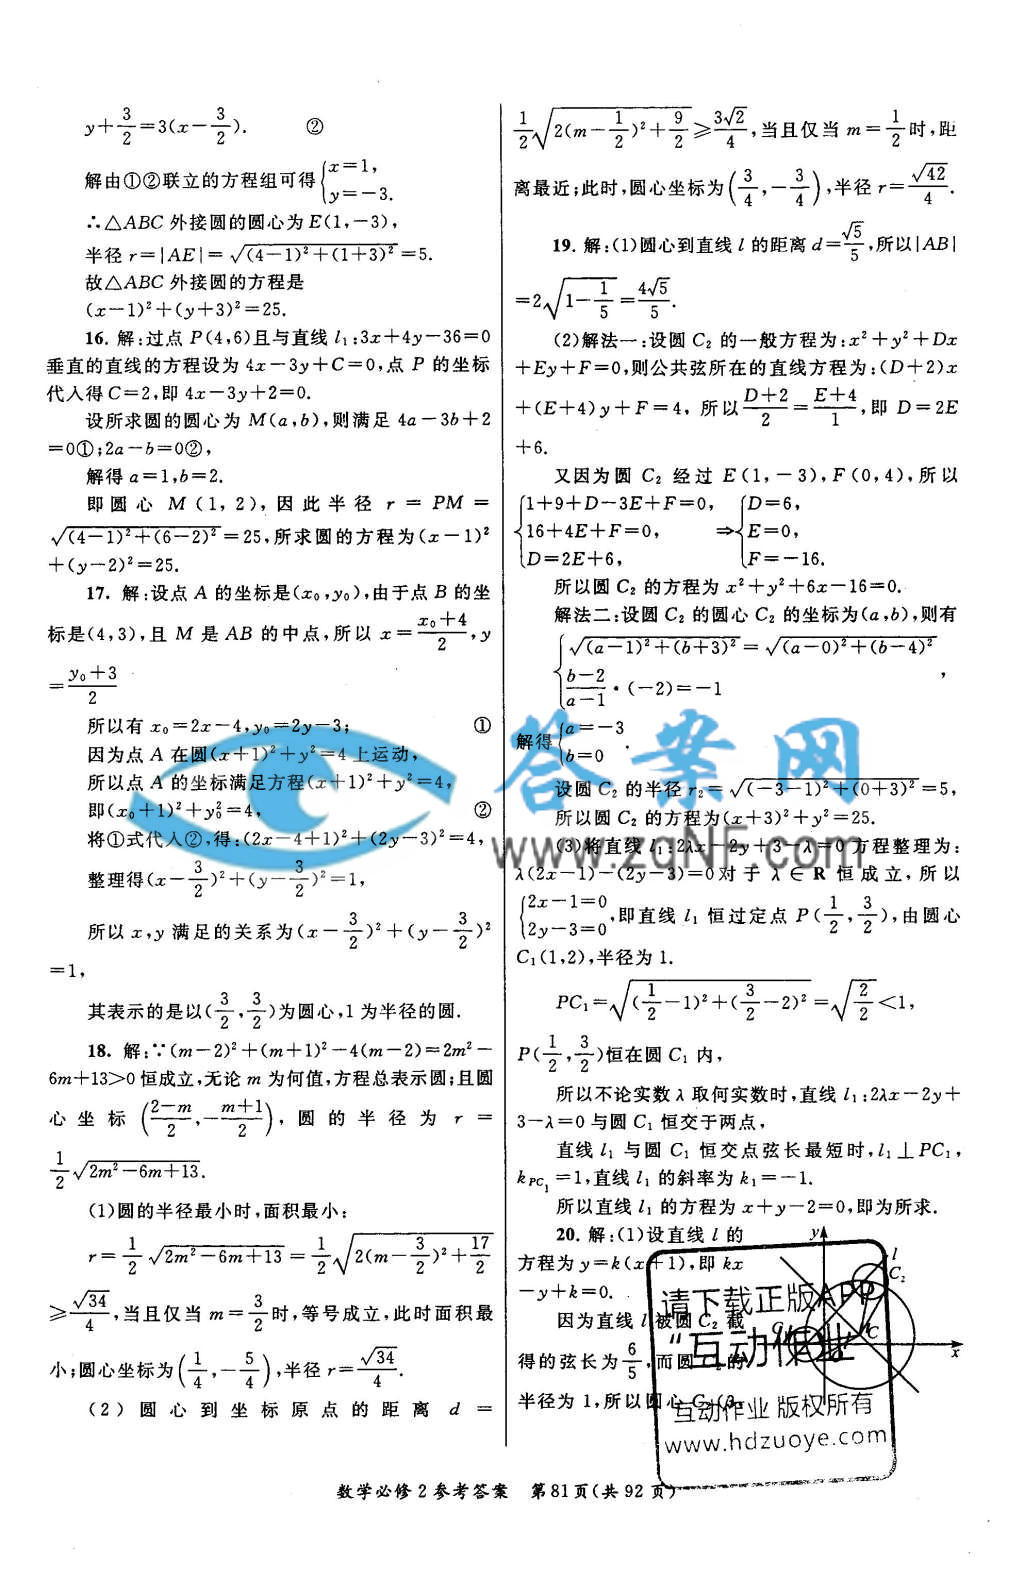 y+3/2=3(x-3/2). ②
解由①②联立的方程组可得{x=1, y=-3.
∴△ABC 外接圆的圆心为 E(1,-3),
半径 r=|AE|=√((4-1)²+(1+3)²)=5.
故△ABC 外接圆的方程是
(x-1)²+(y+3)²=25.
16. 解:过点 P(4,6)且与直线 l₁:3x+4y-36=0
垂直的直线的方程设为 4x-3y+C=0,点 P 的坐标
代入得 C=2,即 4x-3y+2=0.
设所求圆的圆心为 M(a,b),则满足 4a-3b+2
=0①;2a-b=0②,
解得 a=1,b=2.
即圆心 M(1,2),因此半径 r=PM=
√((4-1)²+(6-2)²)=25,所求圆的方程为(x-1)²
+(y-2)²=25.
17. 解:设点 A 的坐标是(x₀,y₀),由于点 B 的坐
标是(4,3),且 M 是 AB 的中点,所以 x=(x₀+4)/2,y
=(y₀+3)/2
所以有 x₀=2x-4,y₀=2y-3; ①
因为点 A 在圆(x+1)²+y²=4 上运动,
所以点 A 的坐标满足方程(x+1)²+y²=4,
即(x₀+1)²+y₀²=4, ②
将①式代入②,得:(2x-4+1)²+(2y-3)²=4,
整理得(x-3/2)²+(y-3/2)²=1,
所以 x,y 满足的关系为(x-3/2)²+(y-3/2)²
=1,
其表示的是以(3/2,3/2)为圆心,1 为半径的圆.
18. 解:∵(m-2)²+(m+1)²-4(m-2)=2m²-
6m+13>0 恒成立,无论 m 为何值,方程总表示圆;且圆
心坐标((2-m)/2,-(m+1)/2),圆的半径为 r=
1/2√(2m²-6m+13).
(1)圆的半径最小时,面积最小:
r=1/2√(2m²-6m+13)=1/2√(2(m-3/2)²+17/2)
≥√34/4,当且仅当 m=3/2时,等号成立,此时面积最
小;圆心坐标为(1/4,-5/4),半径 r=√34/4.
(2)圆心到坐标原点的距离 d=
1/2√(2(m-1/2)²+9/2)≥3√2/4,当且仅当 m=1/2时,距
离最近;此时,圆心坐标为(3/4,-3/4),半径 r=√42/4.
19. 解:(1)圆心到直线 l 的距离 d=√5/5,所以|AB|
=2√(1-1/5)=4√5/5.
(2)解法一:设圆 C₂ 的一般方程为:x²+y²+Dx
+Ey+F=0,则公共弦所在的直线方程为:(D+2)x
+(E+4)y+F=4,所以(D+2)/2=(E+4)/1,即 D=2E
+6.
又因为圆 C₂ 经过 E(1,-3),F(0,4),所以
{1+9+D-3E+F=0, {D=6,
16+4E+F=0, ⇒ E=0,
D=2E+6, F=-16.
所以圆 C₂ 的方程为 x²+y²+6x-16=0.
解法二:设圆 C₂ 的圆心 C₂ 的坐标为(a,b),则有
{√((a-1)²+(b+3)²)=√((a-0)²+(b-4)²)
(b-2)/(a-1)·(-2)=-1 ,
解得{a=-3 b=0.
设圆 C₂ 的半径 r₂=√((-3-1)²+(0+3)²)=5,
所以圆 C₂ 的方程为(x+3)²+y²=25.
(3)将直线 l₁:2λx-2y+3-λ=0 方程整理为:
λ(2x-1)-(2y-3)=0 对于 λ∈R 恒成立,所以
{2x-1=0 2y-3=0,即直线 l₁ 恒过定点 P(1/2,3/2),由圆心
C₁(1,2),半径为 1.
PC₁=√((1/2-1)²+(3/2-2)²)=√(2/2)<1,
P(1/2,3/2)恒在圆 C₁ 内,
所以不论实数 λ 取何实数时,直线 l₁:2λx-2y+
3-λ=0 与圆 C₁ 恒交于两点,
直线 l₁ 与圆 C₁ 恒交点弦长最短时,l₁⊥PC₁,
k_PC₁=1,直线 l₁ 的斜率为 k₁=-1.
所以直线 l₁ 的方程为 x+y-2=0,即为所求.
20. 解:(1)设直线 l 的
方程为 y=k(x+1),即 kx
-y+k=0.
因为直线 l 被圆 C₂ 截
得的弦长为6/5,而圆 的
半径为 1,所以圆心 C₂(3,
y
l
C₂
C
x
答案网
www.zqNF.com
请下载正版APP
“互动作业”
互动作业 版权所有
www.hdzuoye.com
数学必修 2 参考答案 第 81 页(共 92 页)